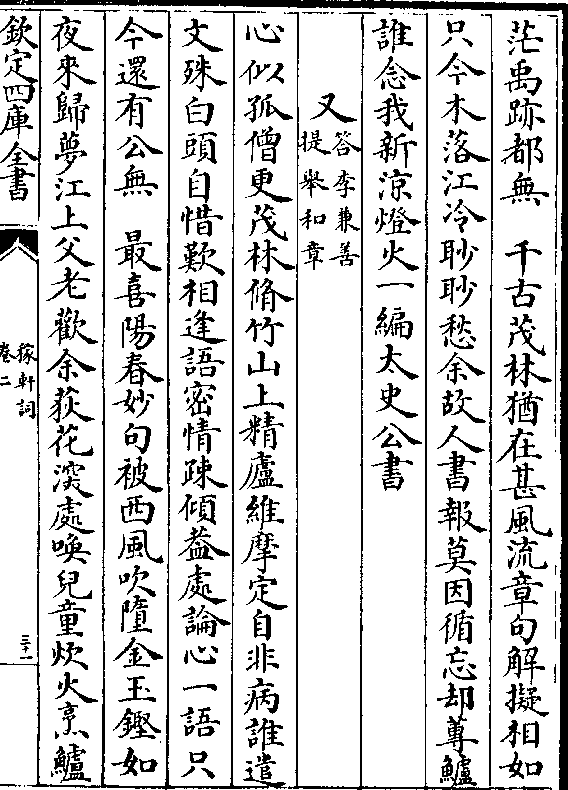 茫禹跡都無　千古茂林猶在甚風流章句解擬相如
只今木落江冷眇眇愁余故人書報莫因循忘却蓴鱸
誰念我新涼燈火一編太史公書
又答李兼善
提舉和章
心似孤僧更茂林脩竹山上精廬維摩定自非病誰遣
文殊白頭自惜歎相逢語密情疎傾蓋處論心一語只
今還有公無　最喜陽春妙句被西風吹墮金玉鏗如
夜來歸夢江上父老歡余荻花深處喚兒童炊火烹鱸
欽定四庫全書
稼軒詞
卷二
三十一